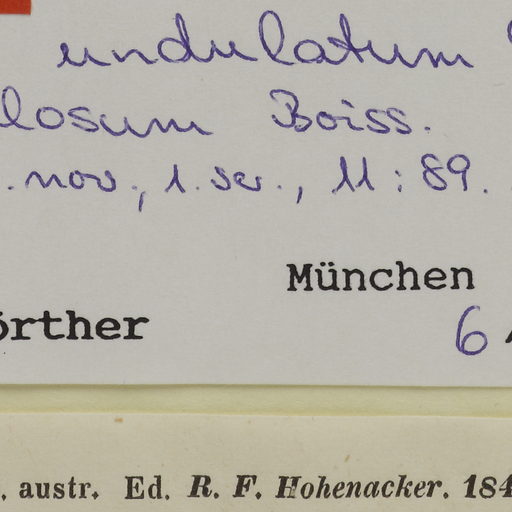 undulatum
losum Boiss.
. nov., 1. ser., 11: 89.
München
örther
6
. austr. Ed. R. F. Hohenacker. 184